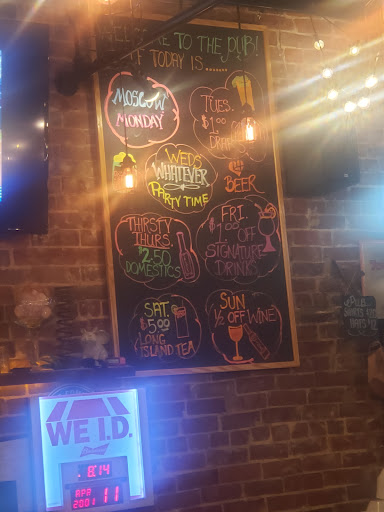 WELCOME TO THE PUB!
IF TODAY IS.......
MOSCOW
MONDAY
TUES.
$1.00
WEDS
WHATEVER
PARTY TIME
BEER
THIRSTY
THURS.
$2.50
DOMESTICS
FRI.
$1.00 OFF
SIGNATURE
DRINKS
SAT.
$5.00
LONG
ISLAND TEA
SUN
1/2 OFF WINE
WE I.D.
8:14
APR 11
2001